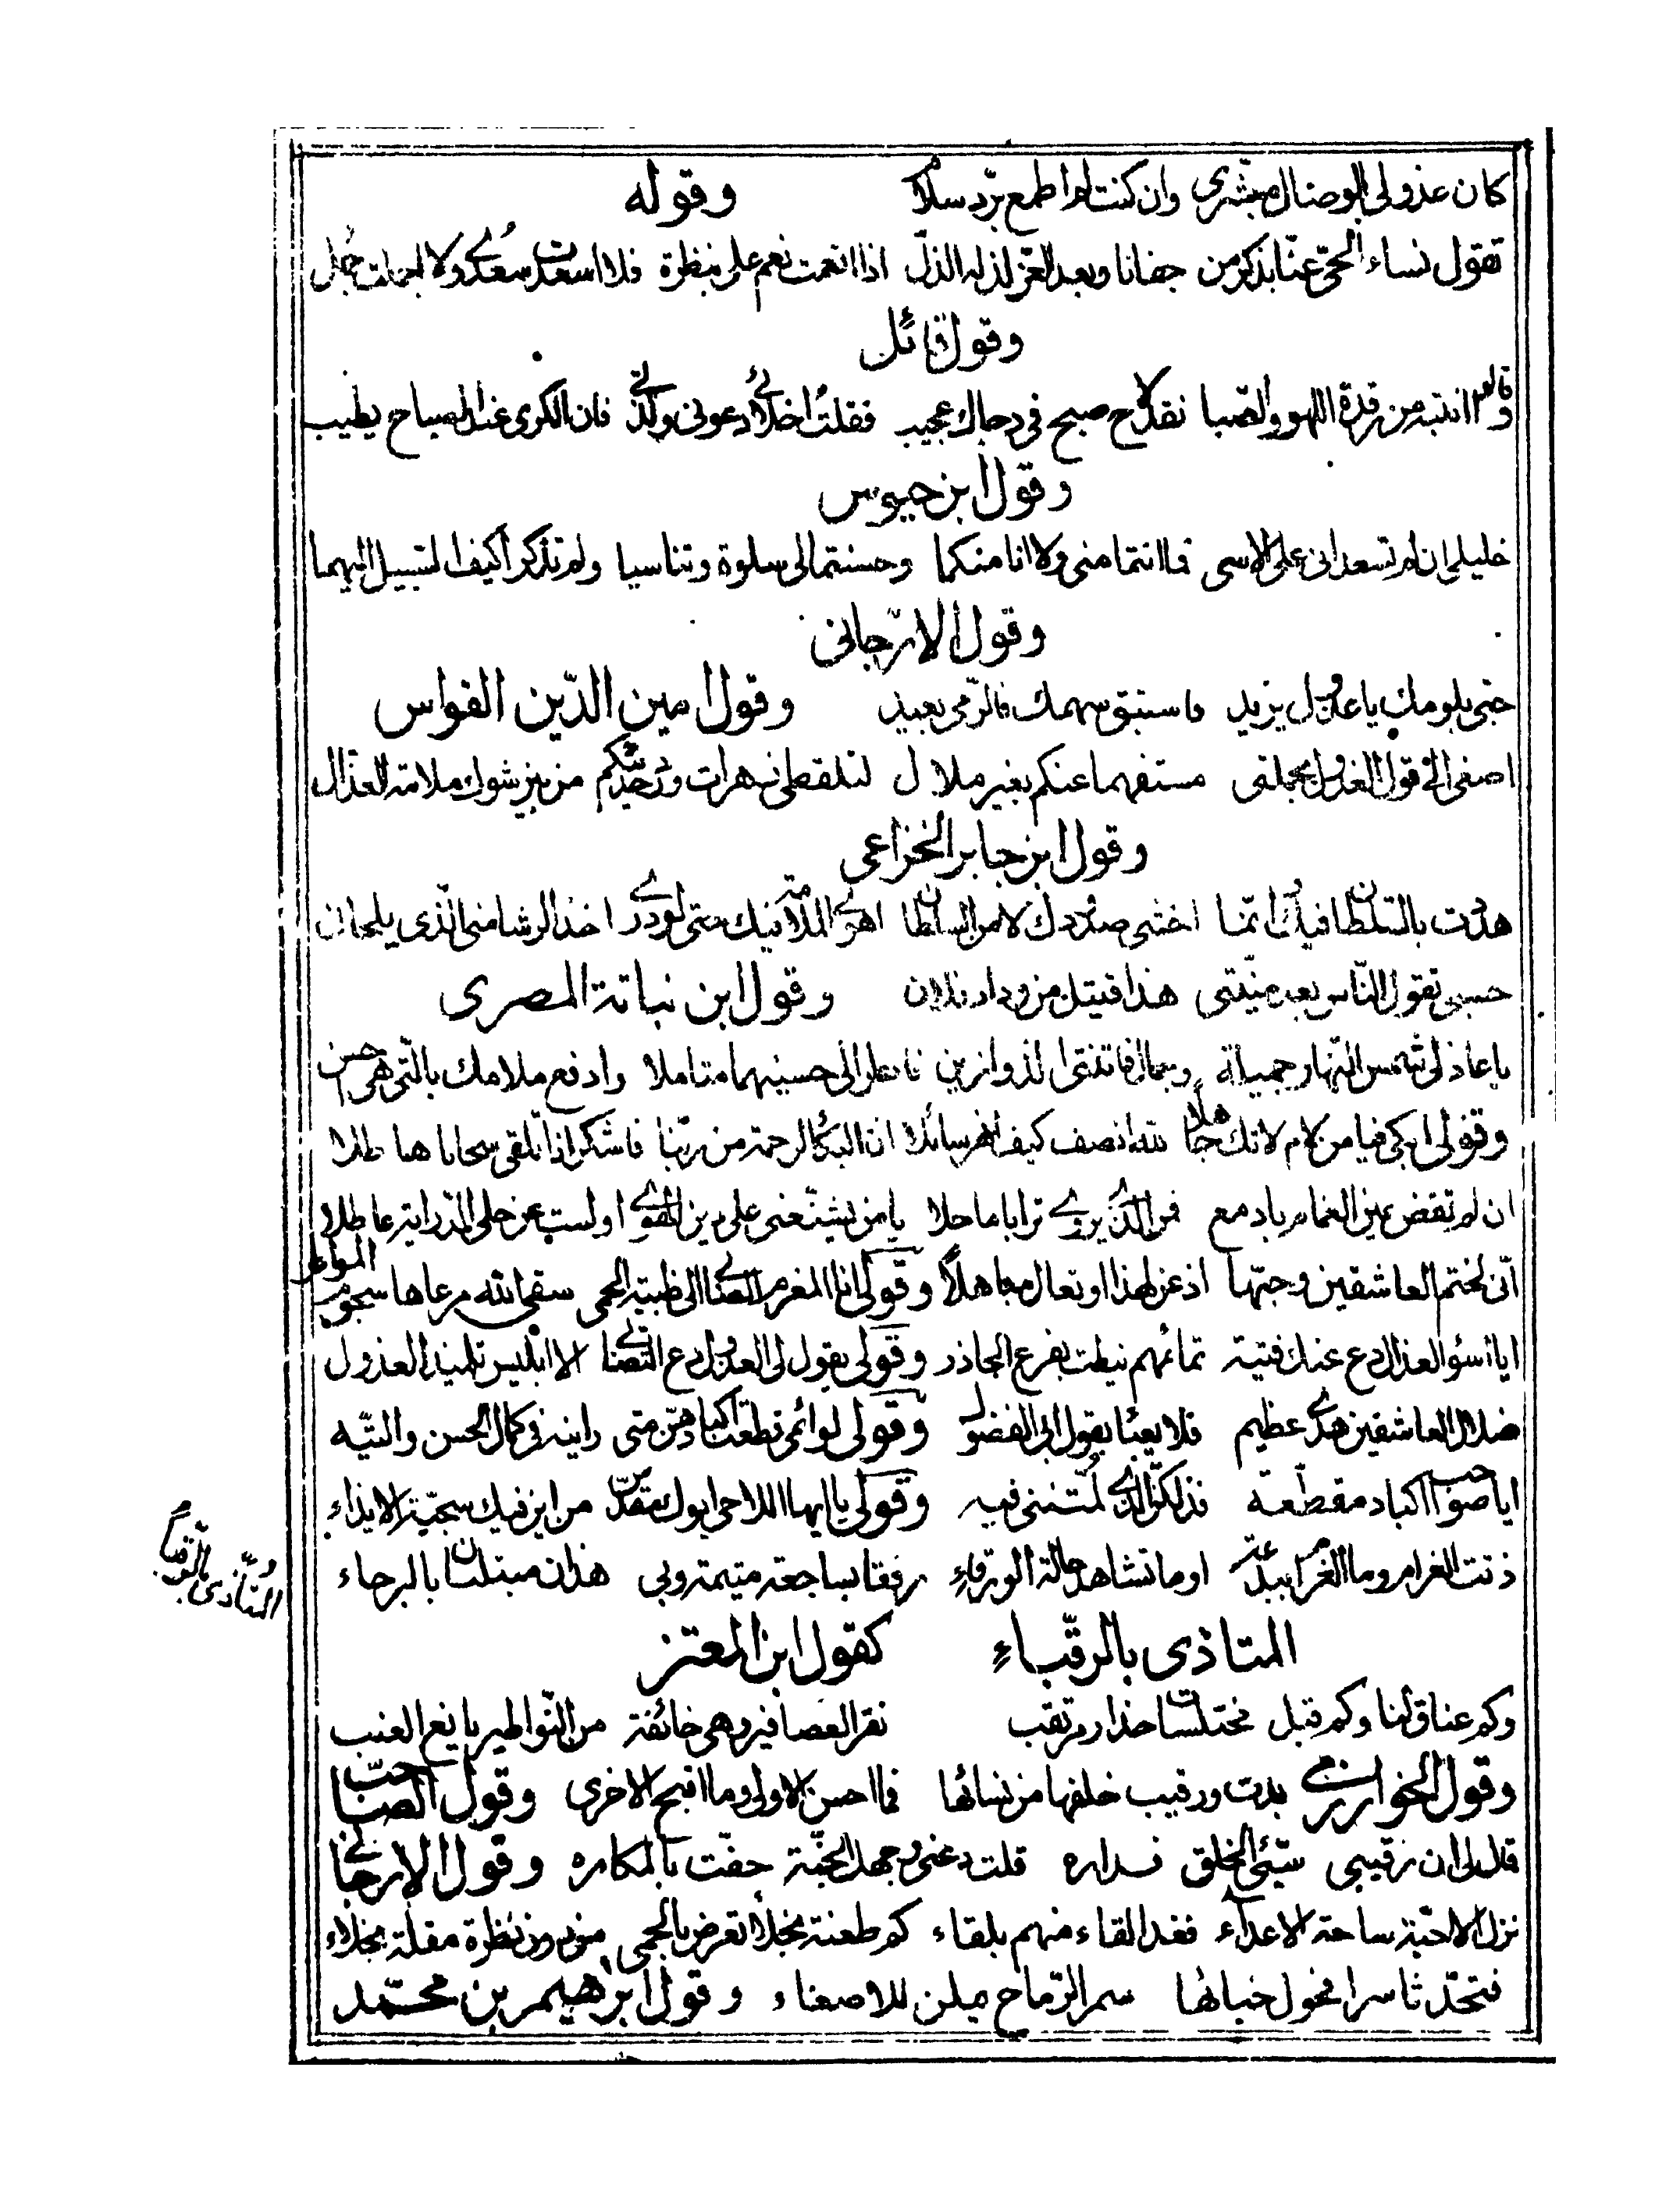 كان عذولى بالوصال مبشرى وان كنت لم اطمع برد سلام وقوله
تقول نساء الحىّ عنّا بذكر من جفانا وبعد العزّ لذ له الذلّ اذا انعمت نعم على بنظرة فلا اسعدت سعدى ولا اجملت جمل
وقول قائل
وقالوا انتبه من رقدة اللهو والصّبا فقد لاح صبح فى دجاك عجيب فقلت اخلائى دعونى ولذتى فان الكرى عند الصباح يطيب
وقول ابن حيوس
خليلى ان لم تسعدانى على الاسى فما انتما منى ولا انا منكما وحسنتما لى سلوة وتناسيا ولم تذكرا كيف السبيل اليهما
وقول الارّجانى
حتى بلومك يا عذول يزيد فاستبق سهمك فالرّمى بعيد وقول امين الدّين القواس
اصغى الى قول العذول بجملتى مستفهما عنكم بغير ملال لتلقطى زهرات ورد حديثكم من بين شوك ملامة العذّال
وقول ابن جابر الخزاعى
هدّدت بالسلطان فيك وانّما اخشى صدودك لا من السلطان اهوى الملامة فيك حتى لو درى اخذ الرشا منى الّذى يلحانى
حسبى تقول النّاس بعد منيّتى هذا قتيل من وداد فلان وقول ابن نباتة المصرى
يا عاذلى شمس النّهار جميلة وجمال فاتنتى الذ وازين فانظر الى حسنيهما متاملا وادفع ملامك بالّتى هى احسن
وقولى ابكى فيا من لام لا تك جاهلا لله انصف كيف انهر سائلا ان البكا لرحمة من ربّنا فاشكر اذا تلقى سحابا هاطلا
ان لم تفض عين الغمام بادمع فمن الذى يروى ترابا ماحلا يا من يشنّعنى على دين الهوى اولست عن حلى الدّراية عاطلا
انّى لختم العاشقين وحبّها اذعن لهذا او تعال مجاهلا وقولى انا المغرم العنا الى ظبية الحمى سقى الله مرعاها سجوم المواطر
ايا اسؤ العذال دع عنك فتية تمائمهم نيطت بفرع الجاذر وقولى يقول لى العذول دع التصابى الا ابليس تلميذ العذول
ضلال العاشقين هدى عظيم فلا يعبأ بقول ابى الفضول وقولى لوائمى قطعت اكبادهنّ متى راينه فى كمال الحسن والتيه
ايا صواحب اكباد مقطعة فذلكنّ الذى لمتننى فيه وقولى يا ايها اللاحى ابوك مقدّس من اين فيك سجيّة الايذاء
ذنت الغرام وما الغرام ببدعة اوما تشاهد حالة الورقاء رفقا بساجعة متيمة وبى هذان مبتلان بالبرحاء
المتاذى بالرقّباء كقول ابن المعتز
وكم عناق لنا وكم قبل مختلسات حذار مرتقب نقر العصافير وهى خائفة من النّواطير يانع العنب
وقول الخوارزمى بدت ورقيب خلفها من نسائها فما احسن الاولى وما اقبح الاخرى وقول الصّاحب
قال لى ان رقيبى سيّئ الخلق فداره قلت دعنى وجهك الجنّة حفّت بالمكاره وقول الارجانى
نزل الاحبّة ساحة الاعداء فغدا لقاء منهم بلقاء كم طعنة نجلاء تعرض بالحمى من دون نظرة مقلة نجلاء
فتحدّثا سرا فحول خبائها سمر الرّماح يملن للاصغاء وقول ابرٰهيم بن محمّد
المتأذى بالرّقباء